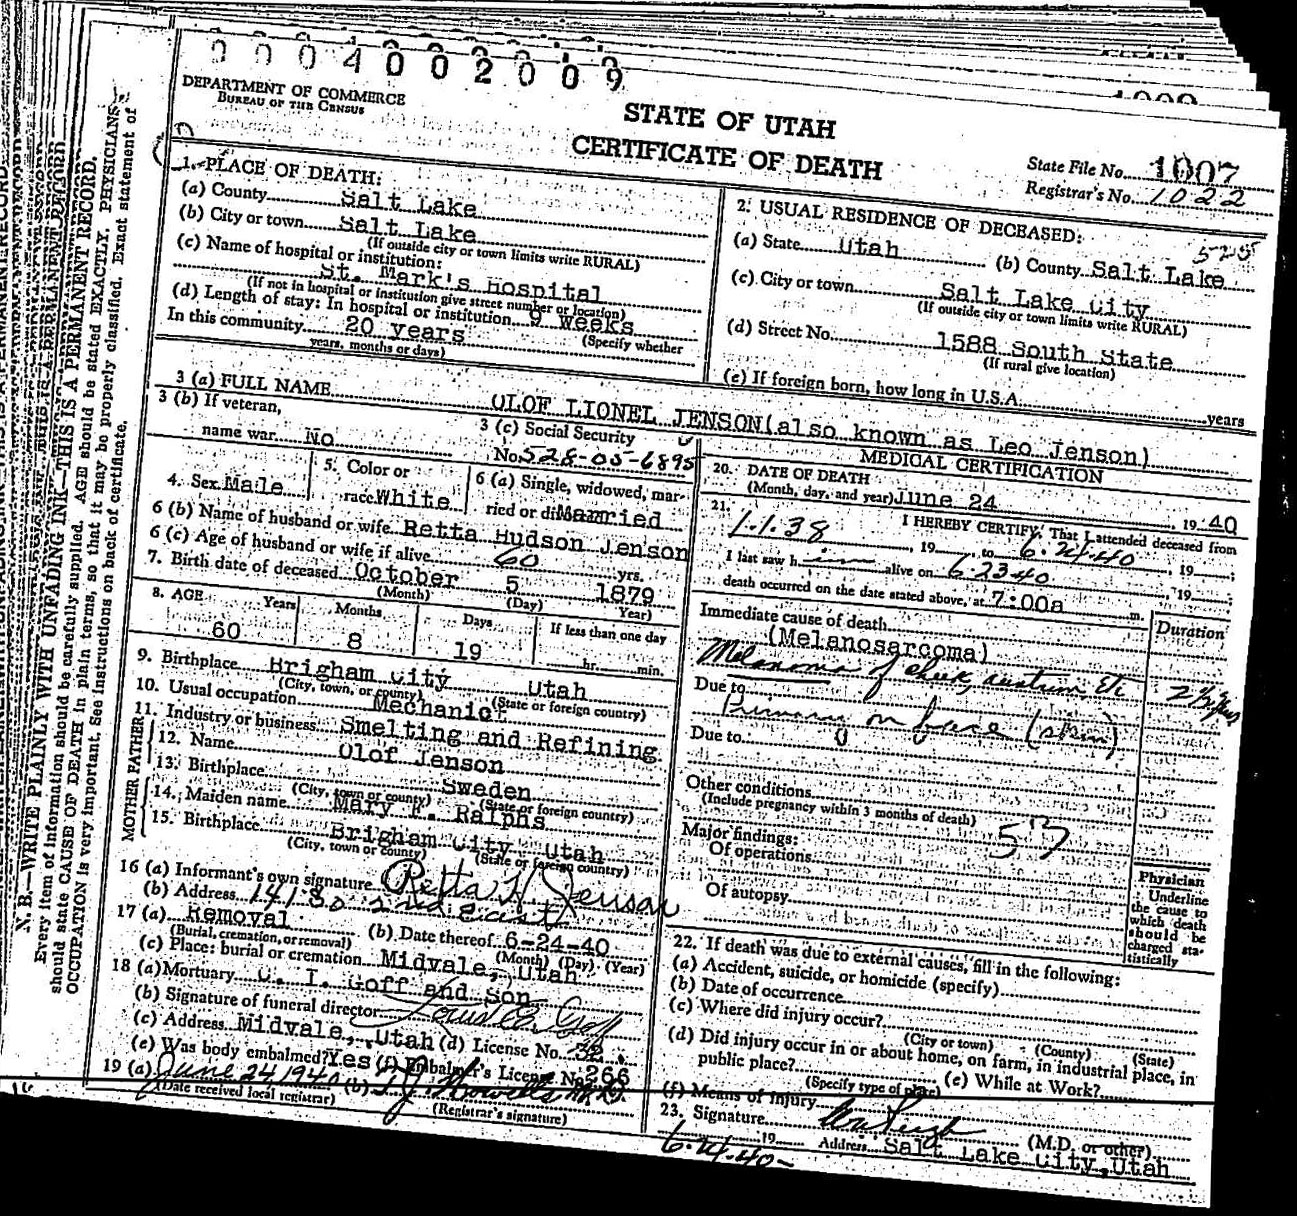 0004002009
DEPARTMENT OF COMMERCE
BUREAU OF THE CENSUS
STATE OF UTAH
CERTIFICATE OF DEATH
State File No. 1007
Registrar's No. 1022
1. PLACE OF DEATH:
(a) County Salt Lake
(b) City or town Salt Lake
(If outside city or town limits write RURAL)
(c) Name of hospital or institution:
St. Mark's Hospital
(If not in hospital or institution give street number or location)
(d) Length of stay: In hospital or institution 9 weeks
(Specify whether
In this community 20 years
years, months or days)
2. USUAL RESIDENCE OF DECEASED:
525
(a) State Utah (b) County Salt Lake
(c) City or town Salt Lake City
(If outside city or town limits write RURAL)
(d) Street No. 1588 South State
(If rural give location)
(e) If foreign born, how long in U.S.A. years
3 (a) FULL NAME OLOF LIONEL JENSON(also known as Leo Jenson)
3 (b) If veteran,
name war No
3 (c) Social Security
No. 528-05-6895
4. Sex Male
5. Color or
race White
6 (a) Single, widowed, mar-
ried or divorced Married
6 (b) Name of husband or wife Retta Hudson Jenson
6 (c) Age of husband or wife if alive 60 yrs.
7. Birth date of deceased October 5 1879
(Month) (Day) Year)
8. AGE Years Months Days If less than one day
60 8 19 hr. min.
9. Birthplace Brigham City Utah
(City, town, or county) (State or foreign country)
10. Usual occupation Mechanic
11. Industry or business Smelting and Refining
FATHER
12. Name Olof Jenson
13. Birthplace Sweden
(City, town or county) (State or foreign country)
MOTHER
14. Maiden name Mary F. Ralphs
15. Birthplace Brigham City Utah
(City, town or county) (State or foreign country)
16 (a) Informant's own signature Retta H Jenson
(b) Address 1418 2nd East
17 (a) Removal (b) Date thereof 6-24-40
(Burial, cremation, or removal) (Month) (Day) (Year)
(c) Place: burial or cremation Midvale, Utah
18 (a) Mortuary C. I. Goff and Son
(b) Signature of funeral director Goff
(c) Address Midvale, Utah (d) License No. 32
(e) Was body embalmed? Yes (f) Embalmer's License No. 266
19 (a) June 24 1940 (b)
(Date received local registrar) (Registrar's signature)
MEDICAL CERTIFICATION
20. DATE OF DEATH
(Month, day, and year) June 24, 1940
21. I HEREBY CERTIFY, That I attended deceased from
1.1.38, 19 to 6.24.40, 19 ;
I last saw h im alive on 6.23.40, 19 ;
death occurred on the date stated above, at 7:00a m.
Immediate cause of death Duration
(Melanosarcoma)
Melanoma of cheek, etc 2½ yrs
Due to
Primary on face (skin)
Due to
Other conditions
(Include pregnancy within 3 months of death)
53
Major findings:
Of operations
Of autopsy
Physician
Underline
the cause to
which death
should be
charged sta-
tistically
22. If death was due to external causes, fill in the following:
(a) Accident, suicide, or homicide (specify)
(b) Date of occurrence
(c) Where did injury occur?
(City or town) (County) (State)
(d) Did injury occur in or about home, on farm, in industrial place, in
public place? (e) While at Work?
(Specify type of place)
(f) Means of Injury
23. Signature (M.D. or other)
6.24.40 19 Address Salt Lake City, Utah
N. B.—WRITE PLAINLY WITH UNFADING INK—THIS IS A PERMANENT RECORD.
Every item of information should be carefully supplied. AGE should be stated EXACTLY. PHYSICIANS
should state CAUSE OF DEATH in plain terms, so that it may be properly classified. Exact statement of
OCCUPATION is very important. See instructions on back of certificate.